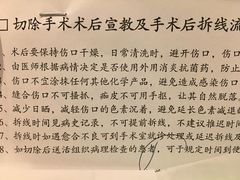 切除手术术后宣教及手术后拆线流
术后要保持伤口干燥，日常清洗时，避开伤口，伤口
由医师根据病情决定是否使用外用消炎抗菌药，防止
伤口不宜涂抹任何其他化学产品，避免造成感染伤口
缝合伤口不可搔抓，痂皮不可用手抠，让其自然脱落
减少日晒，减轻伤口的色素沉着，避免延长色素减退
6、拆线时间见病史记录，不可提前拆线，不建议推迟时间
7、拆线时如遇愈合不良可到手术室就诊处理或延迟拆线及
8、如切除后送活组织病理检查的患者，可于规定时间到便